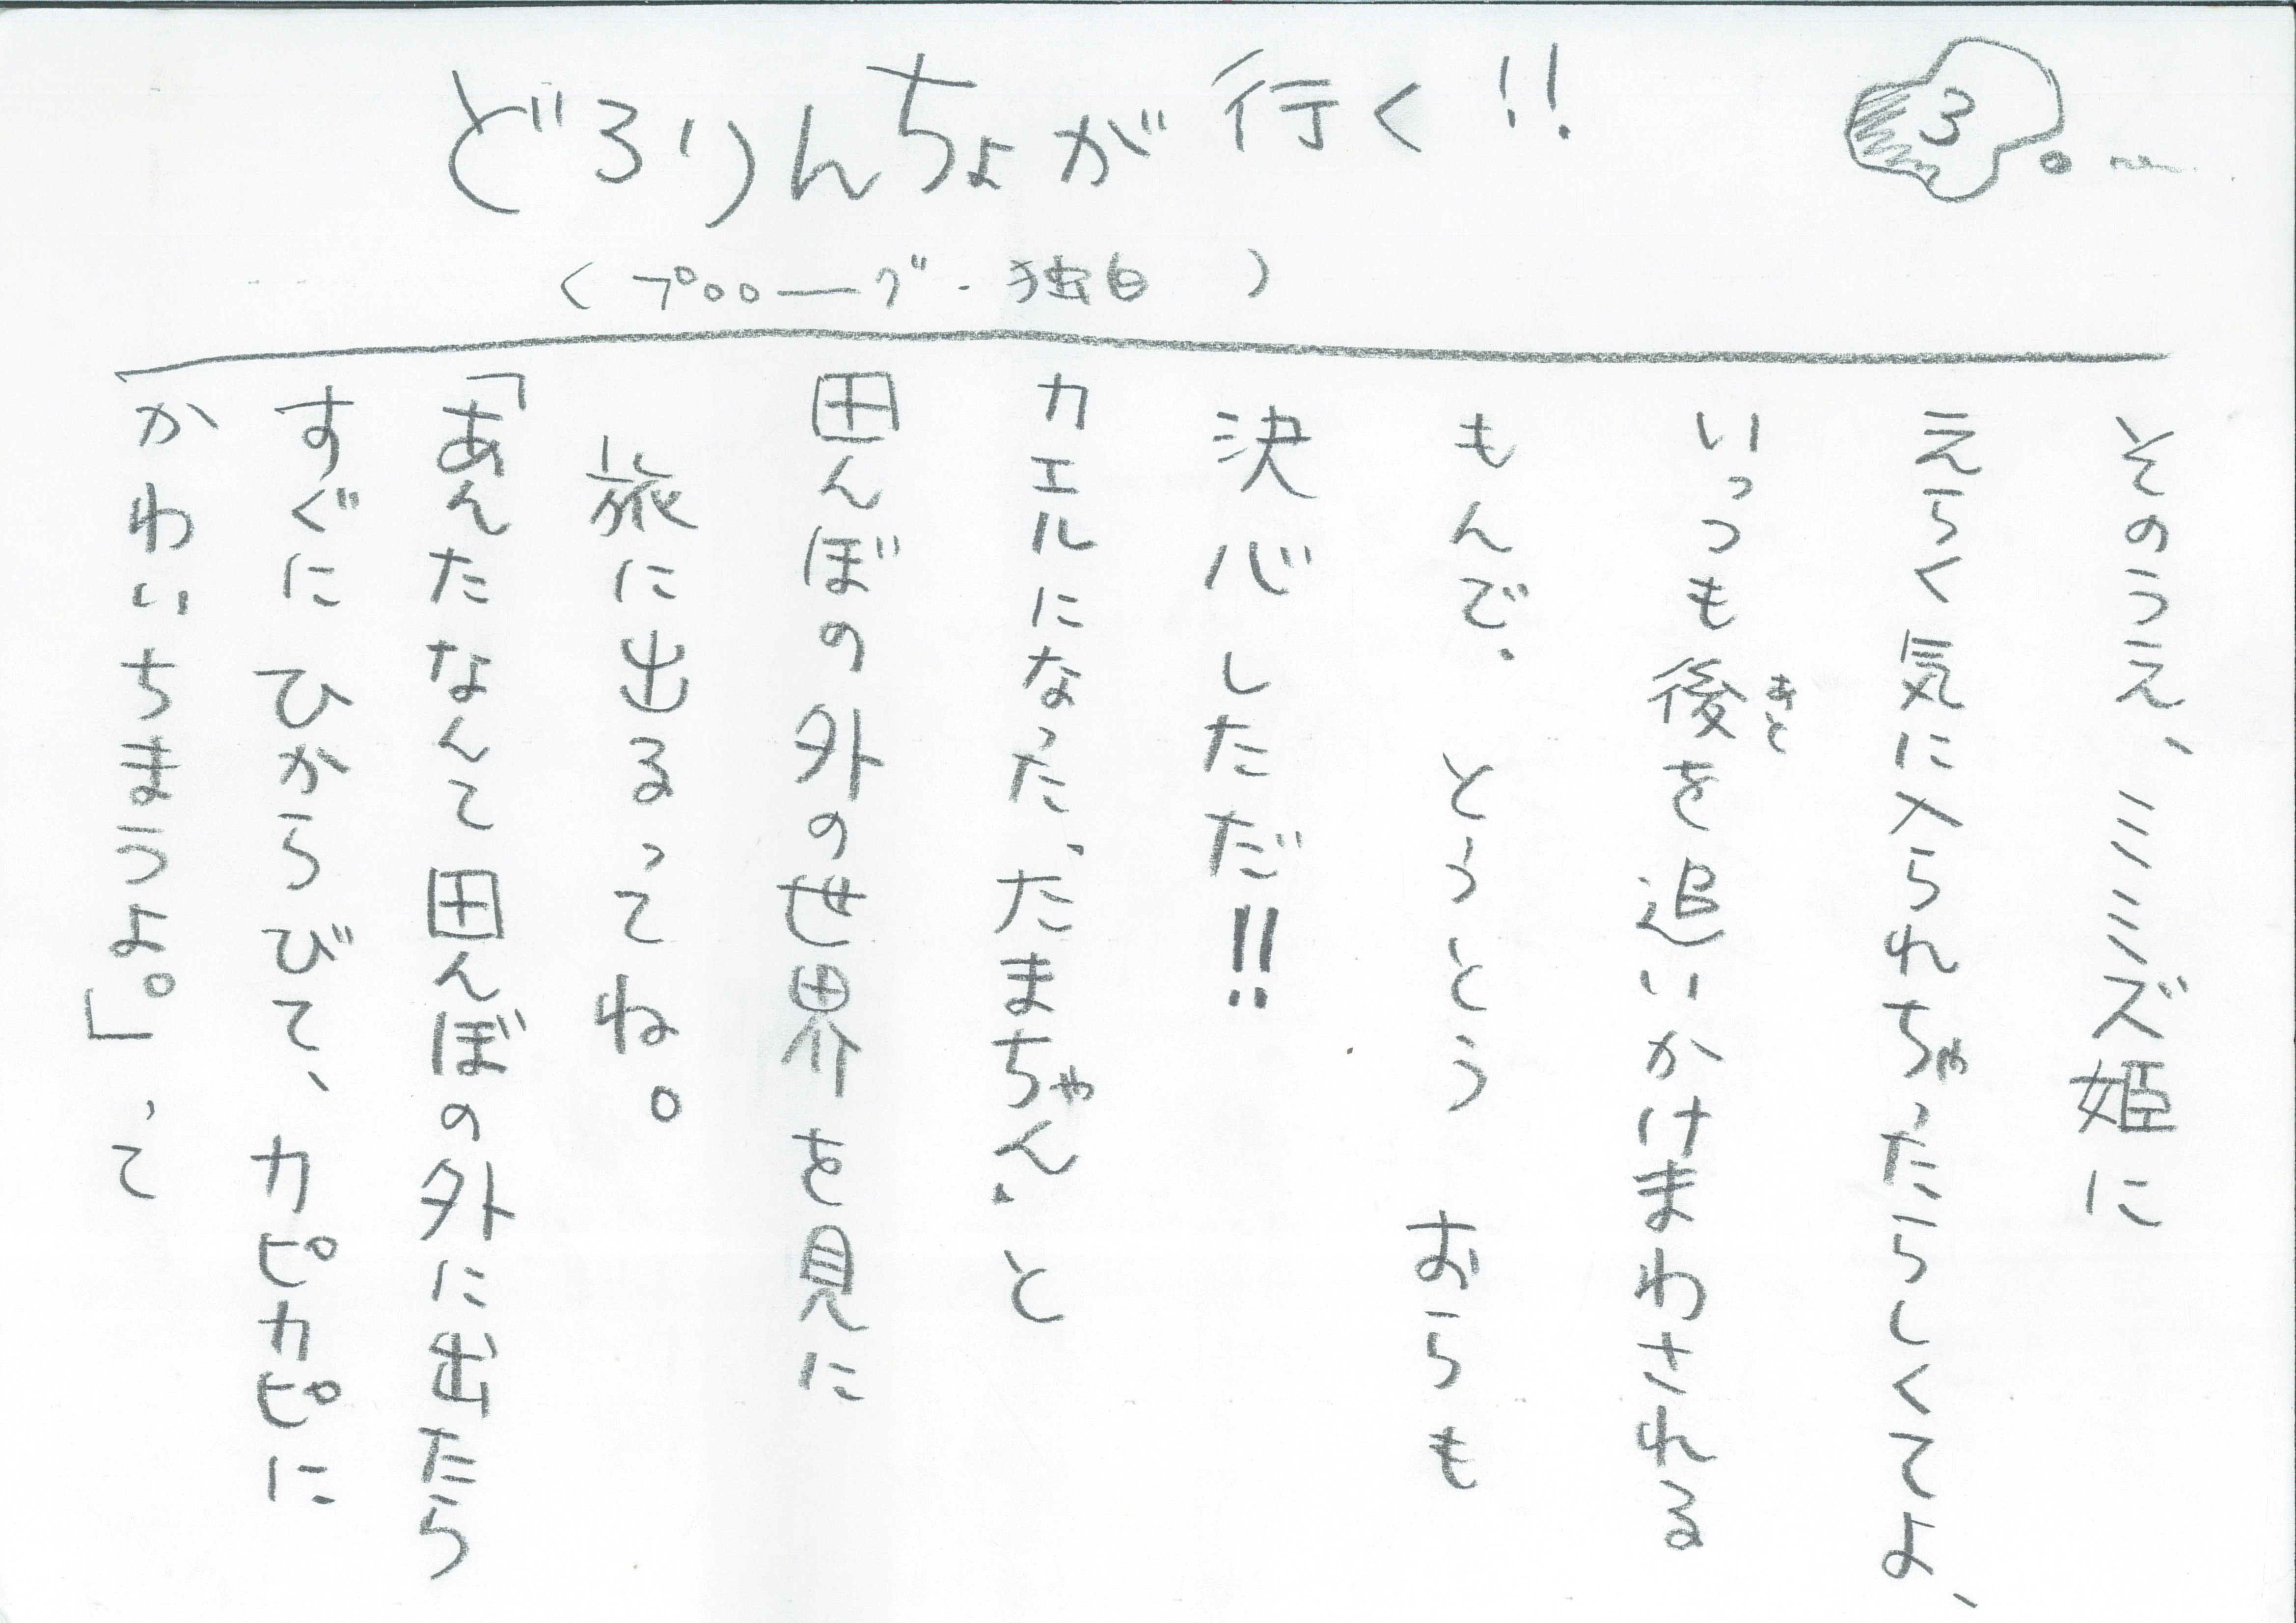 どろりんちょが行く!!
3
(プロローグ・独白)
そのうえ、ミミズ姫に
えらく気に入られちゃったらしくてよ、
いっつも後を追いかけまわされる
あと
もんで、とうとう おらも
決心しただ!!
カエルになった、たまちゃん、と
田んぼの外の世界を見に
旅に出るってね。
「あんたなんて田んぼの外に出たら
すぐにひからびて、カピカピに
かわいちまうよ。」って